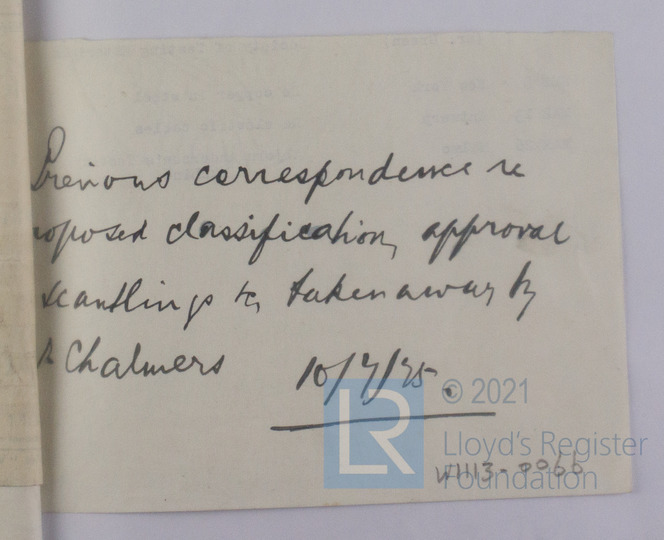 Previous correspondence re
roposed classification, approval
scantlings &c, taken away by
r Chalmers 10/7/25.
LR
© 2021
Lloyd's Register
Foundation
W1113-0066